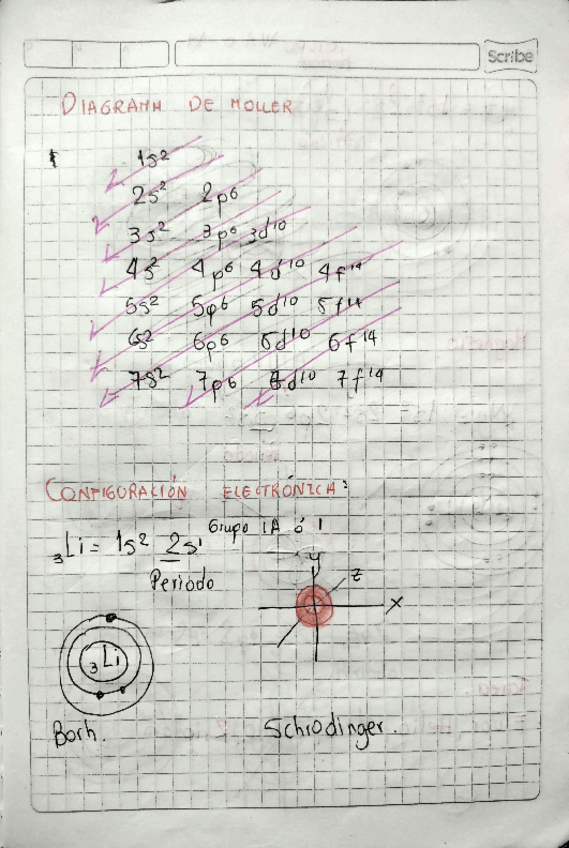 Scribe
DIAGRAMA DE MOLLER
1s²
2s² 2p⁶
3s² 3p⁶ 3d¹⁰
4s² 4p⁶ 4d¹⁰ 4f¹⁴
5s² 5p⁶ 5d¹⁰ 5f¹⁴
6s² 6p⁶ 6d¹⁰ 6f¹⁴
7s² 7p⁶ 7d¹⁰ 7f¹⁴
CONFIGURACIÓN ELECTRÓNICA:
Grupo IA ó 1
₃Li = 1s² 2s¹
Periodo
y
z
x
₃Li
Borh.
Schrodinger.